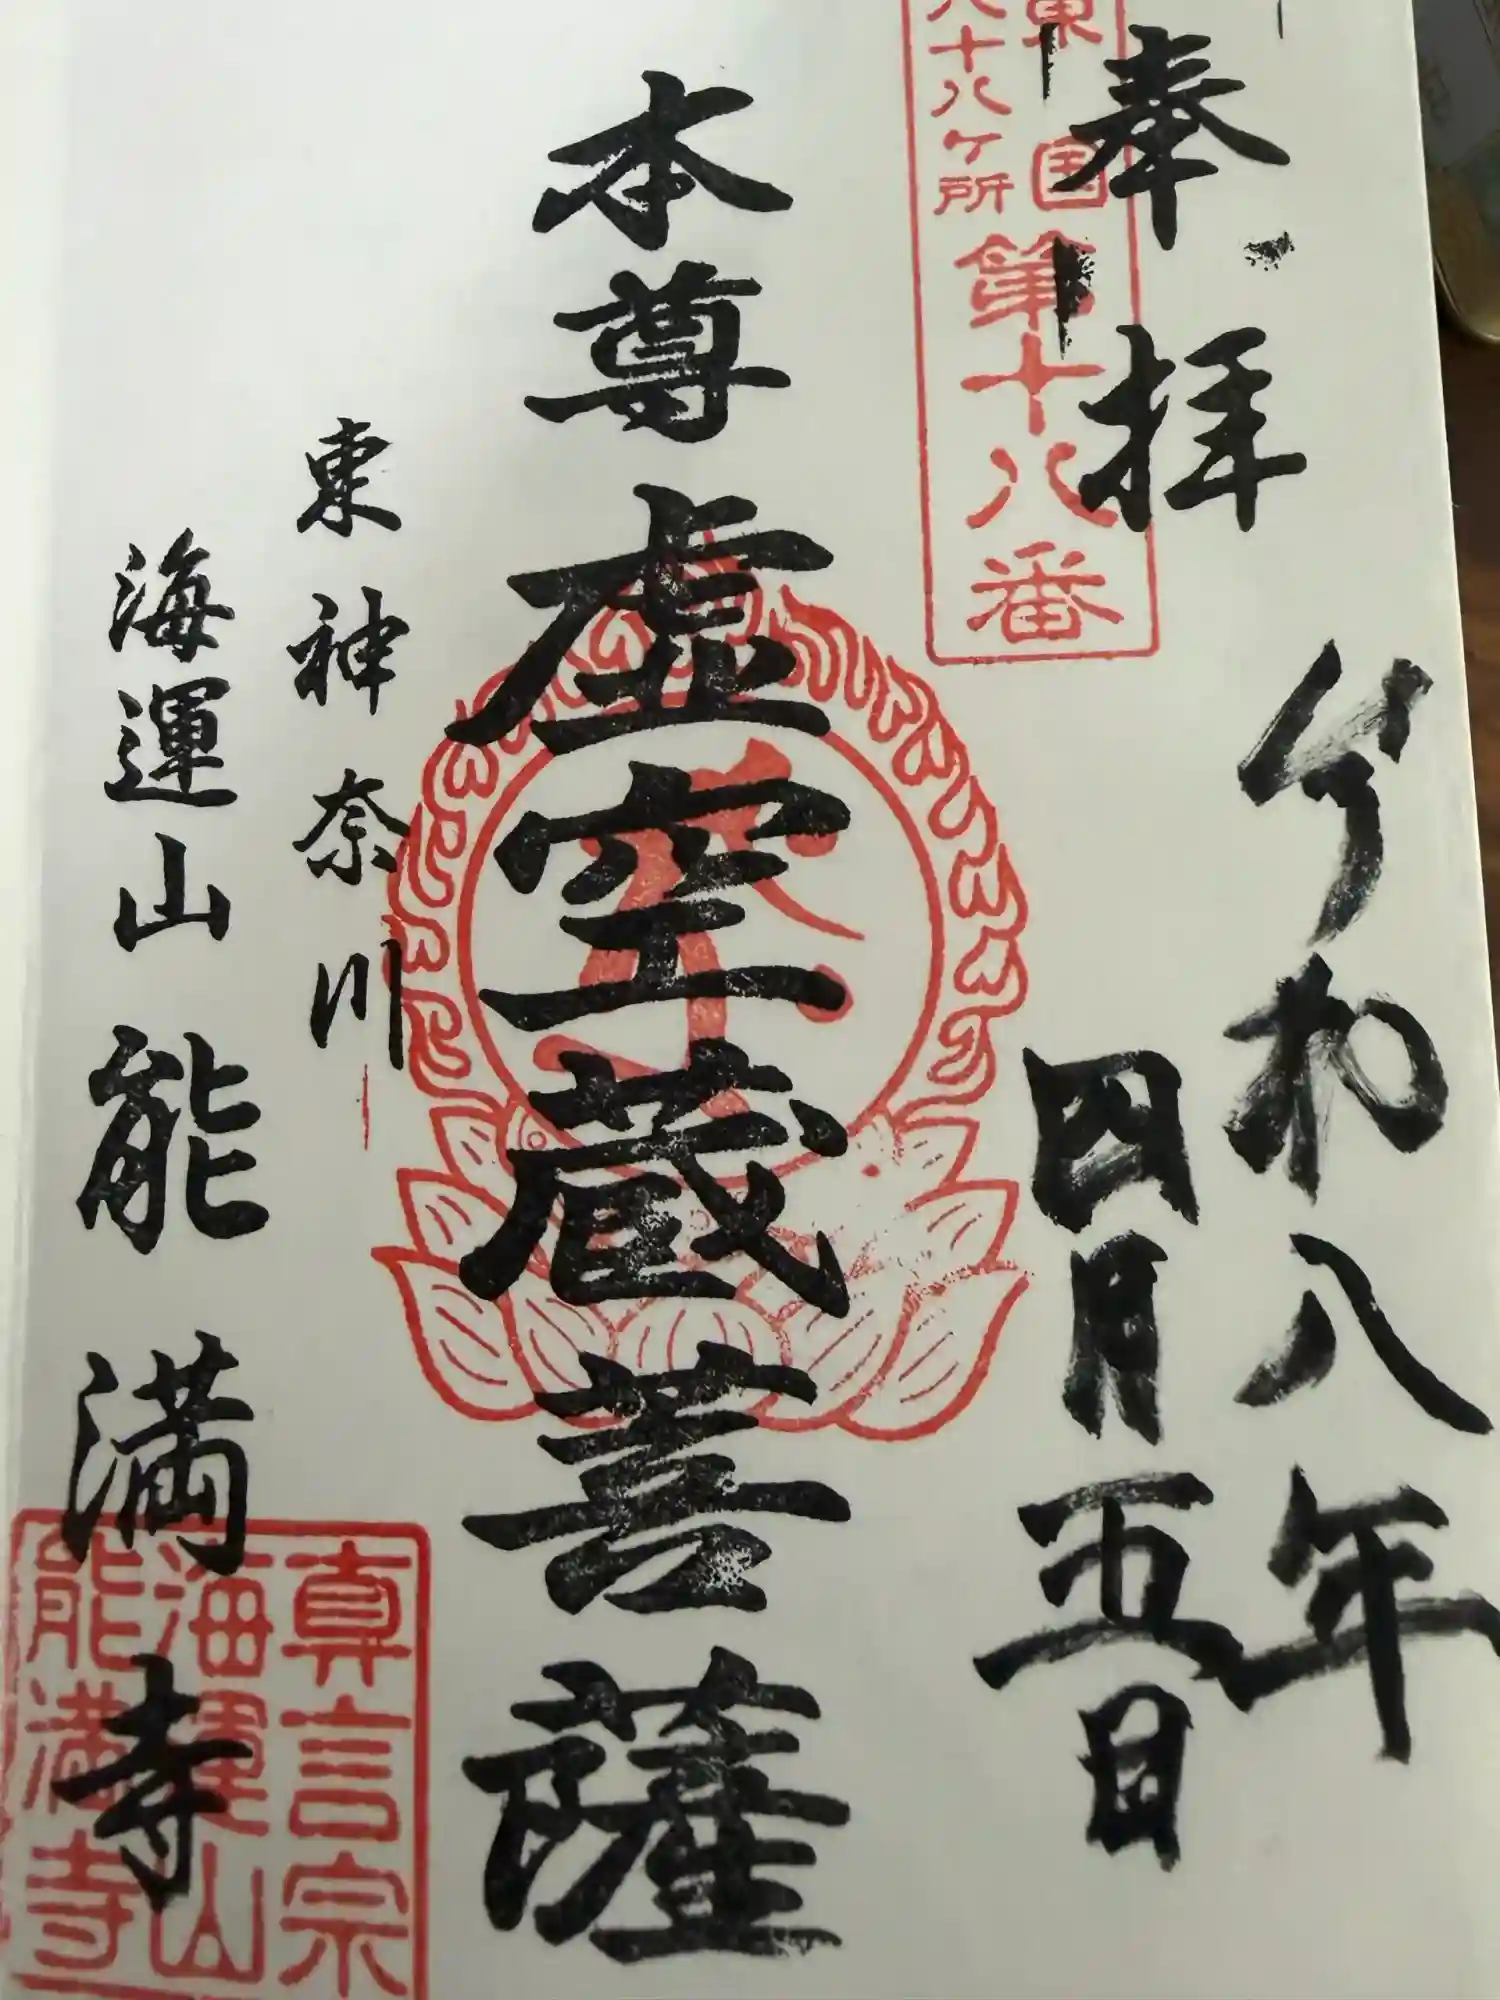 奉拝
令和八年
四月五日
東国
八十八ヶ所
第十八番
本尊虚空蔵菩薩
東神奈川
海運山能満寺
真言宗
海運山
能満寺